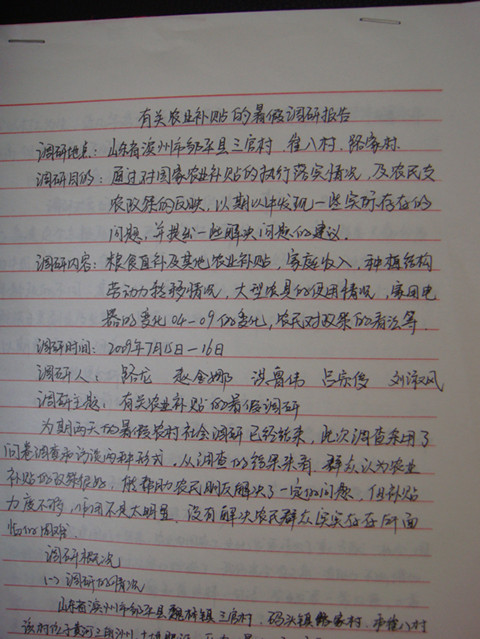 有关农业补贴的暑假调研报告
调研地点：山东省滨州市邹平县三官村、崔八村、路家村.
调研目的：通过对国家农业补贴的执行落实情况，及农民支
农政策的反映，以期从中发现一些实际存在的
问题，并提出一些解决问题的建议.
调研内容：粮食直补及其他农业补贴，家庭收入，种植结构
劳动力转移情况，大型农具的使用情况，家用电
器的变化04-09的变化，农民对政策的看法等.
调研时间：2009年7月15日—16日
调研人： 路龙 赵金娜 洪鲁伟 吕宗俊 刘凉风
调研主题：有关农业补贴的暑假调研
为期两天的暑假农村社会调研已经结束，此次调查采用了
问卷调查和访谈两种形式，从调查的结果来看，群众认为农业
补贴的政策很好，能帮助农民朋友解决了一定的问题，但补贴
力度不够，作用不是太明显，没有解决农民群众实实存在所面
临的困难.
调研概况
(一)调研的情况
山东省滨州市邹平县魏桥镇三官村、码头镇路家村、崔八村
该村位于黄河